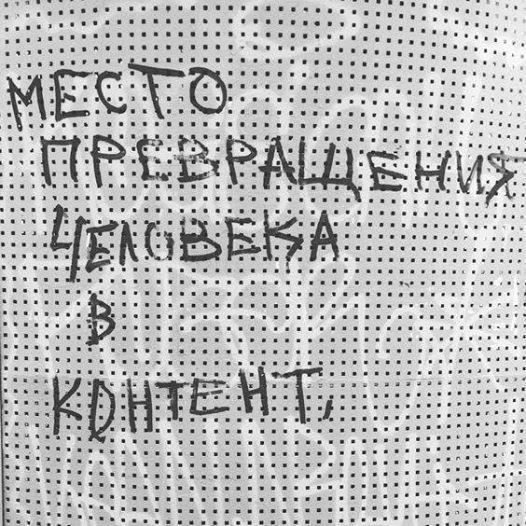 МЕСТО
ПРЕВРАЩЕНИЯ
ЧЕЛОВЕКА
В
КОНТЕНТ,